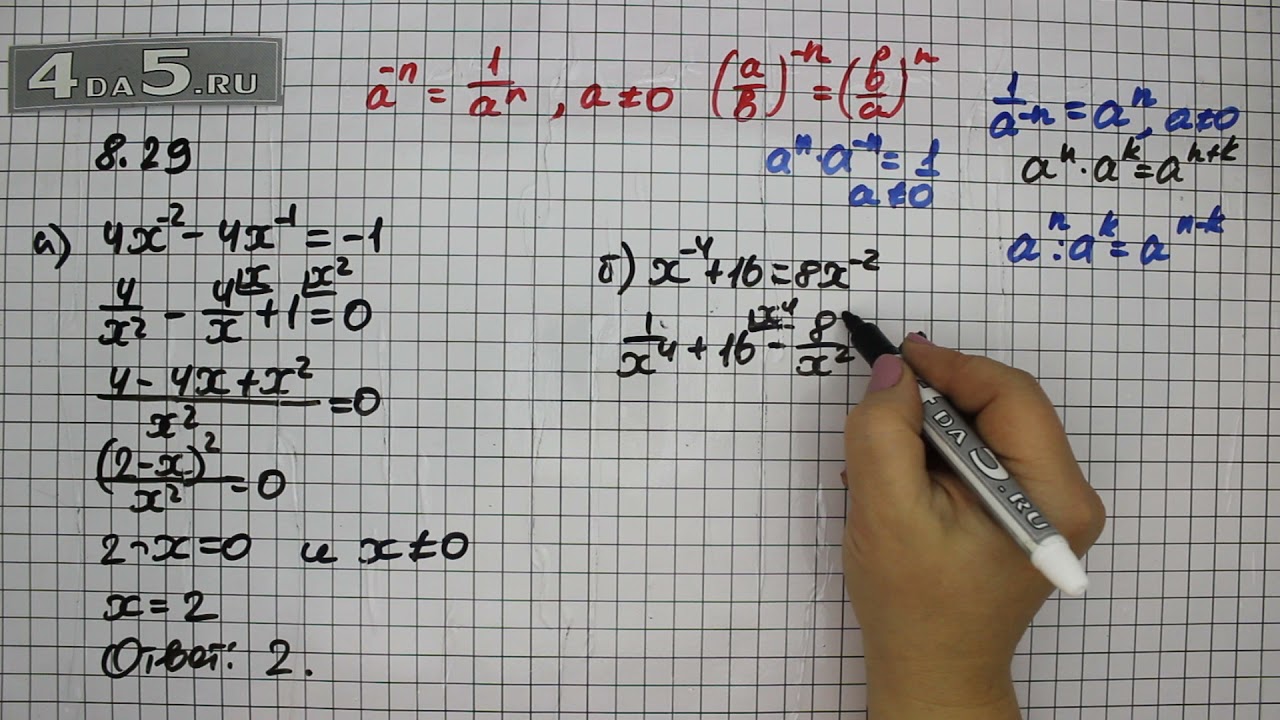 4DA5.RU
a⁻ⁿ = 1/aⁿ, a ≠ 0 (a/b)⁻ⁿ = (b/a)ⁿ
1/a⁻ⁿ = aⁿ, a ≠ 0
aⁿ · a⁻ⁿ = 1
a ≠ 0
aⁿ · aᵏ = aⁿ⁺ᵏ
aⁿ : aᵏ = aⁿ⁻ᵏ
8.29
а) 4x⁻² - 4x⁻¹ = -1
4/x² - 4⌊x/x + 1⌊x² = 0
(4 - 4x + x²)/x² = 0
(2 - x)²/x² = 0
2 - x = 0 и x ≠ 0
x = 2
Ответ: 2.
б) x⁻⁴ + 16 = 8x⁻²
1/x⁴ + 16⌊x⁴ - 8/x²
4DA5.RU